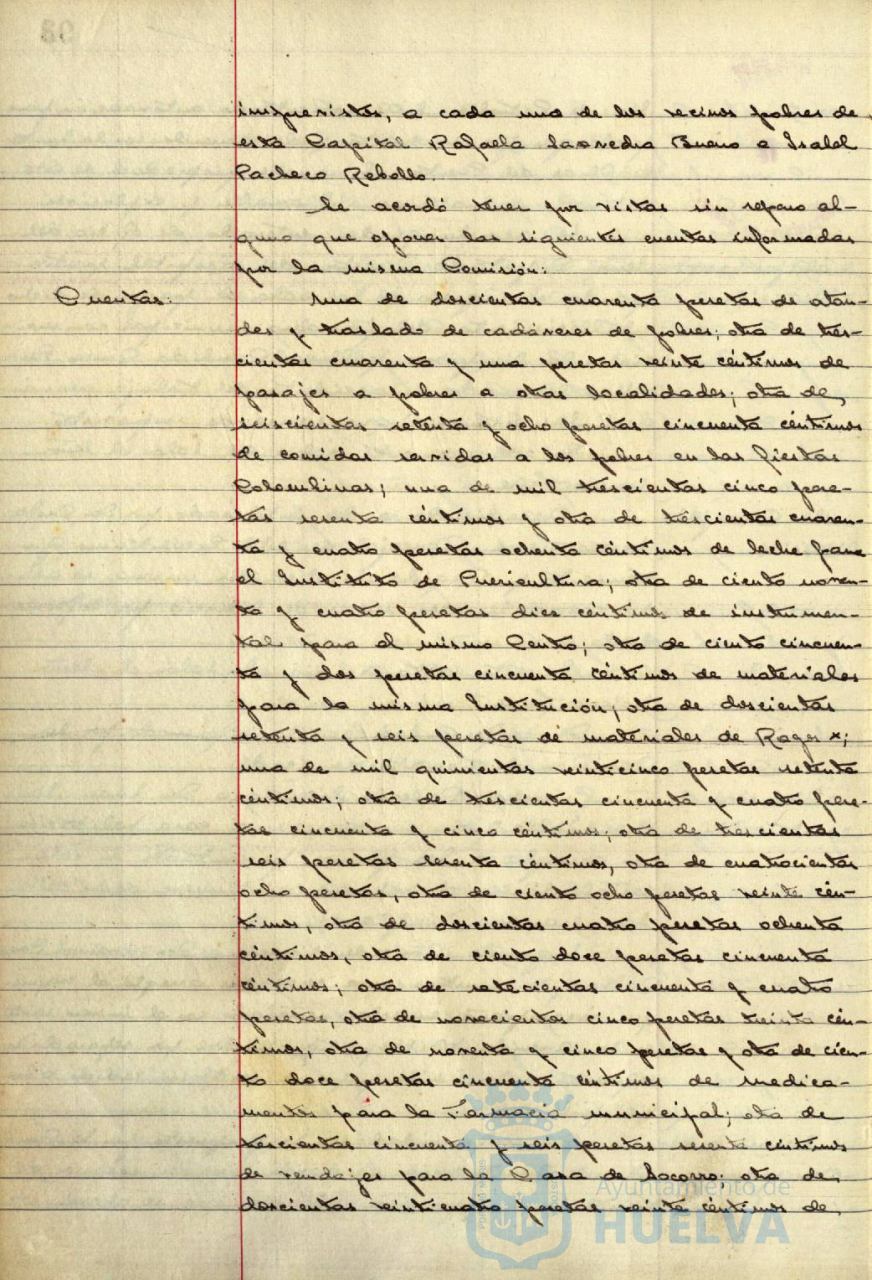 imprevistos, a cada uno de los vecinos pobres de
esta Capital Rafaela Saavedra Bueno e Isabel
Pacheco Rebollo.
Se acordó tener por vistas sin reparo al-
guno que oponer las siguientes cuentas informadas
por la misma Comisión:
Cuentas:
Una de doscientas cuarenta pesetas de ataú-
des y traslado de cadáveres de pobres; otra de tres-
cientas cuarenta y una pesetas veinte céntimos de
pasajes a pobres a otras localidades; otra de
seiscientas setenta y ocho pesetas cincuenta céntimos
de comidas servidas a los pobres en las fiestas
Colombinas; una de mil trescientas cinco pese-
tas sesenta céntimos y otra de trescientas cuaren-
ta y cuatro pesetas ochenta céntimos de leche para
el Instituto de Puericultura; otra de ciento noven-
ta y cuatro pesetas diez céntimos de instrumen-
tal para el mismo Centro; otra de ciento cincuen-
ta y dos pesetas cincuenta céntimos de materiales
para la misma Institución; otra de doscientas
setenta y seis pesetas de materiales de Rayos x;
una de mil quinientas veinticinco pesetas setenta
céntimos; otra de trescientas cincuenta y cuatro pese-
tas cincuenta y cinco céntimos; otra de trescientas
seis pesetas sesenta céntimos, otra de cuatrocientas
ocho pesetas, otra de ciento ocho pesetas veinte cén-
timos, otra de doscientas cuatro pesetas ochenta
céntimos, otra de ciento doce pesetas cincuenta
céntimos; otra de setecientas cincuenta y cuatro
pesetas, otra de novecientos cinco pesetas treinta cén-
timos, otra de noventa y cinco pesetas y otra de cien-
to doce pesetas cincuenta céntimos de medica-
mentos para la Farmacia municipal; otra de
trescientas cincuenta y seis pesetas sesenta céntimos
de vendajes para la Casa de Socorro; otra de
doscientas veinticuatro pesetas veinte céntimos de
Ayuntamiento de
HUELVA